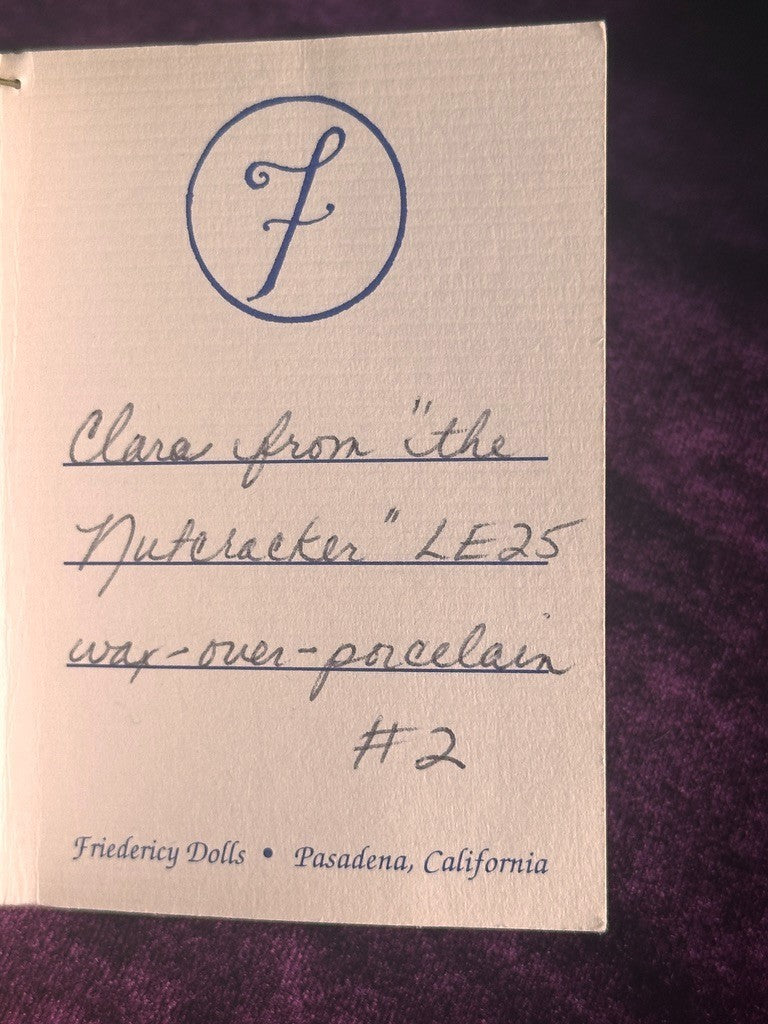 F
Clara from "the
Nutcracker" LE25
wax-over-porcelain
#2
Friedericy Dolls • Pasadena, California